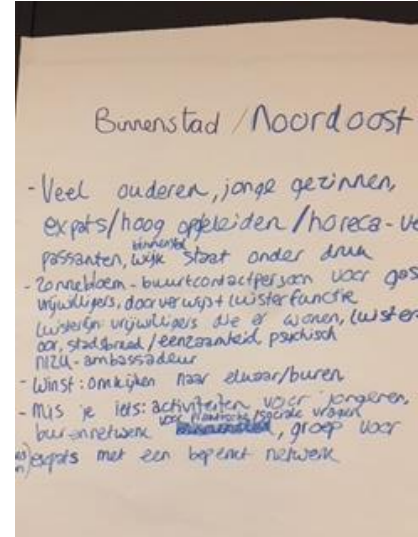 Binnenstad / Noordoost
- Veel ouderen, jonge gezinnen,
expats/hoog opgeleiden / horeca - ve
passanten, binnenstad wijk staat onder druk
- Zonnebloem - buurtcontactpersoon voor gas
vrijwilligers, doorverwijst + luisterfunctie
luisterlijn vrijwilligers die er wonen, luister
oor, stadsbreed / eenzaamheid, psychisch
- ambassadeur
- Winst: omkijken naar elkaar/buren
- Mis je iets: activiteiten voor jongeren,
voor praktische/sociale vragen
burennetwerk, groep voor
expats met een beperkt netwerk